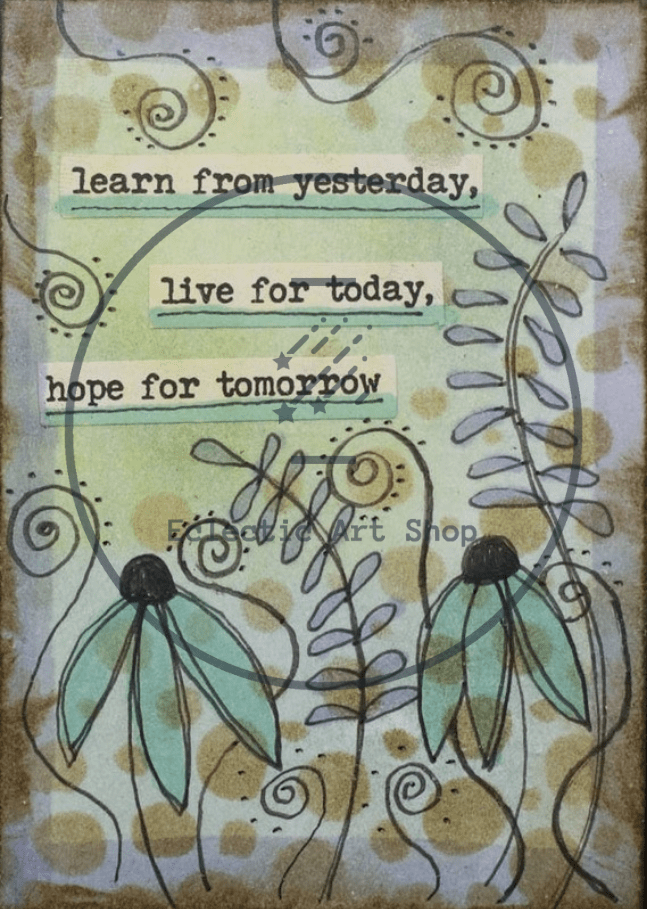 learn from yesterday,
live for today,
hope for tomorrow
Eclectic Art Shop